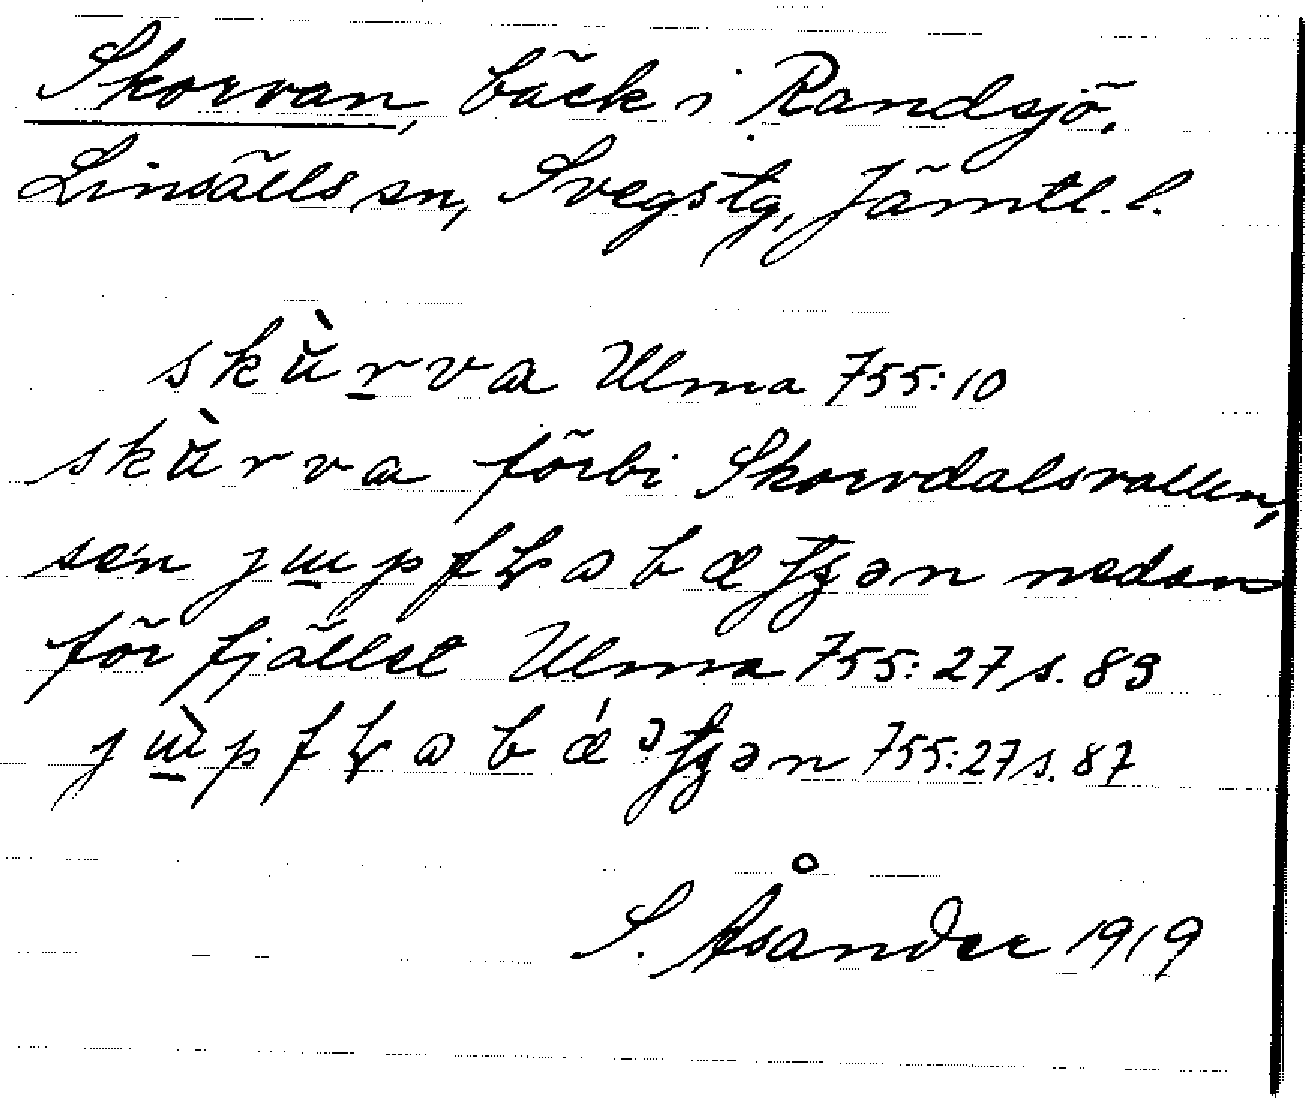 Skorvan, bäck i Randsjö,
Linsälls sn, Svegs tg, Jämtl. l.
skùr̲va Ulma 755:10
skùrva förbi Skorvdalsvallen,
sen nedan
för fjället Ulma 755:27 s. 89
755:27 s. 87
S. Åsander 1919